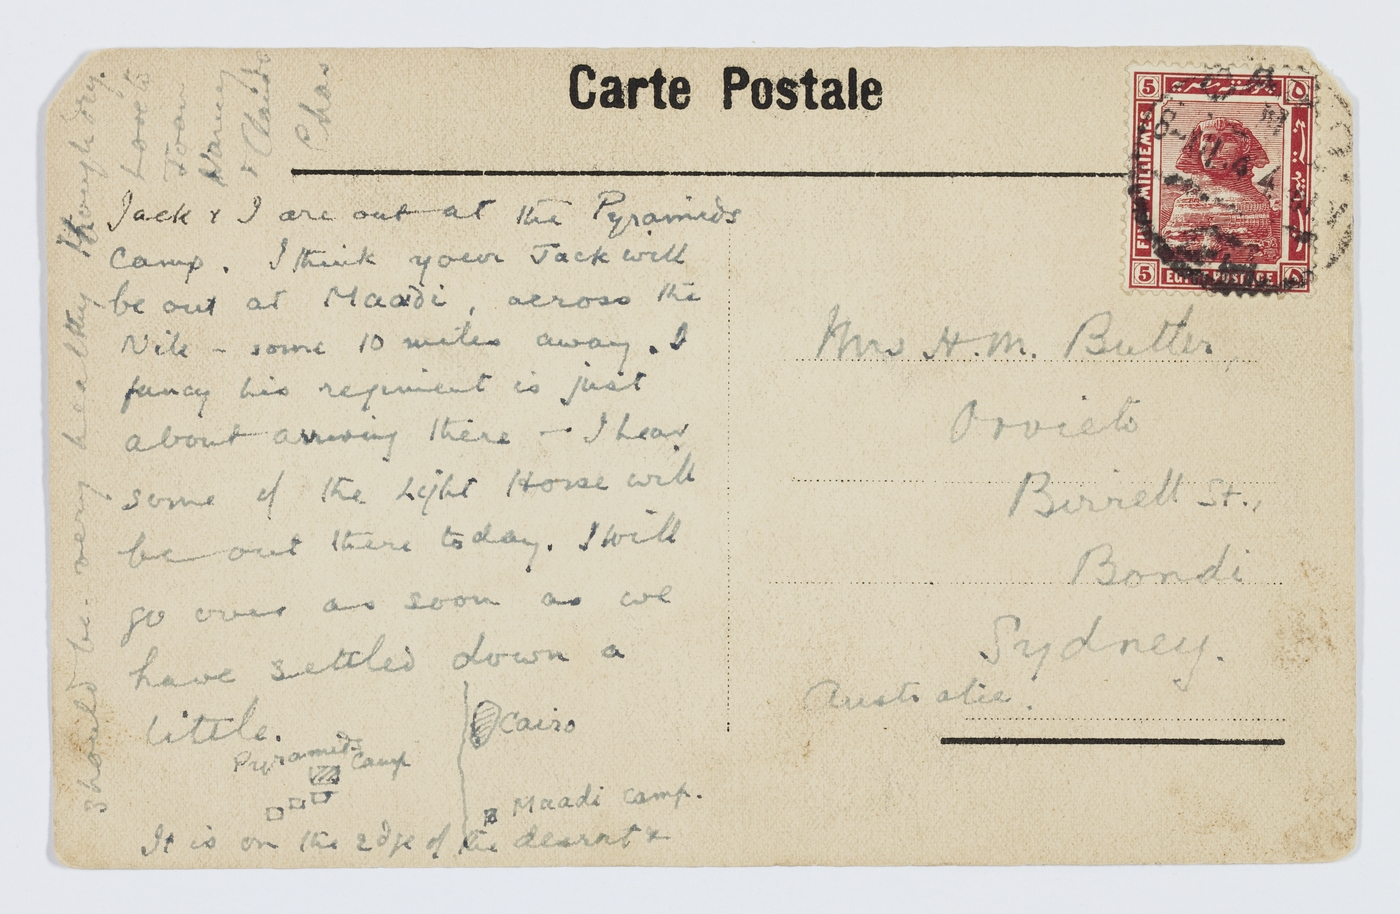 Carte Postale
Jack & I are out at the Pyramids
Camp. I think your Jack will
be out at Maadi, across the
Nile - some 10 miles away. I
fancy his regiment is just
about arriving there - I hear
some of the Light Horse will
be out there today. I will
go over as soon as we
have settled down a
little.
Pyramids Camp
Cairo
Maadi Camp.
It is on the edge of the desert &
should be very healthy though dry.
Love to
Joan
Nancy
&
Chas
Mrs H.M. Butler
Orvieto
Birrell St.,
Bondi
Sydney.
Australia.
5
5
5
FIVE MILLIEMES
EGYPT POSTAGE
٥
٥